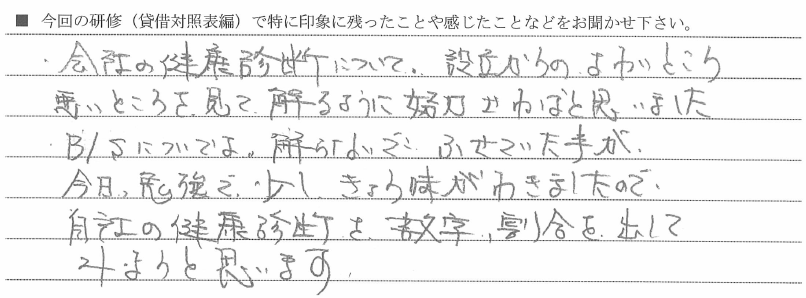 ■ 今回の研修（貸借対照表編）で特に印象に残ったことや感じたことなどをお聞かせ下さい。
・会社の健康診断について、設立からのよわいところ
悪いところを見て、解るように努力せねばと思いました
・B/Sについては。解らないで、ふせていた事が、
今日、勉強で、少し、きょう味がわきましたので、
自社の健康診断を、数字、割合を、出して
みようと思います。